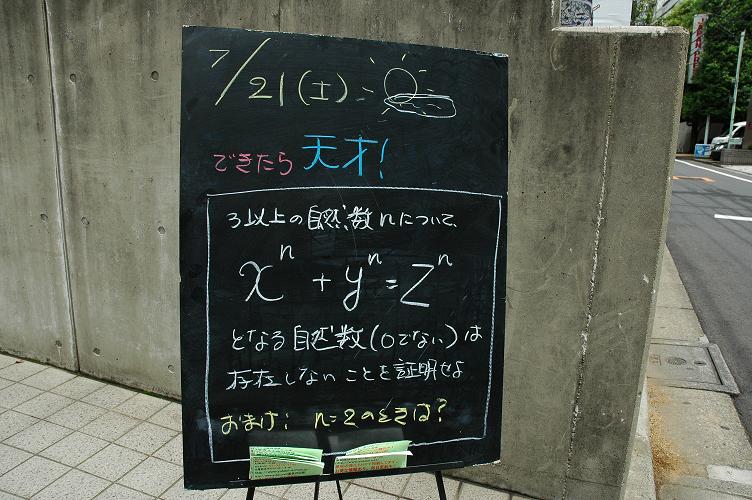 7/21(土)
できたら 天才!
3以上の自然数nについて、
xⁿ + yⁿ = zⁿ
となる自然数(0でない)は
存在しないことを証明せよ
おまけ: n=2のときは?